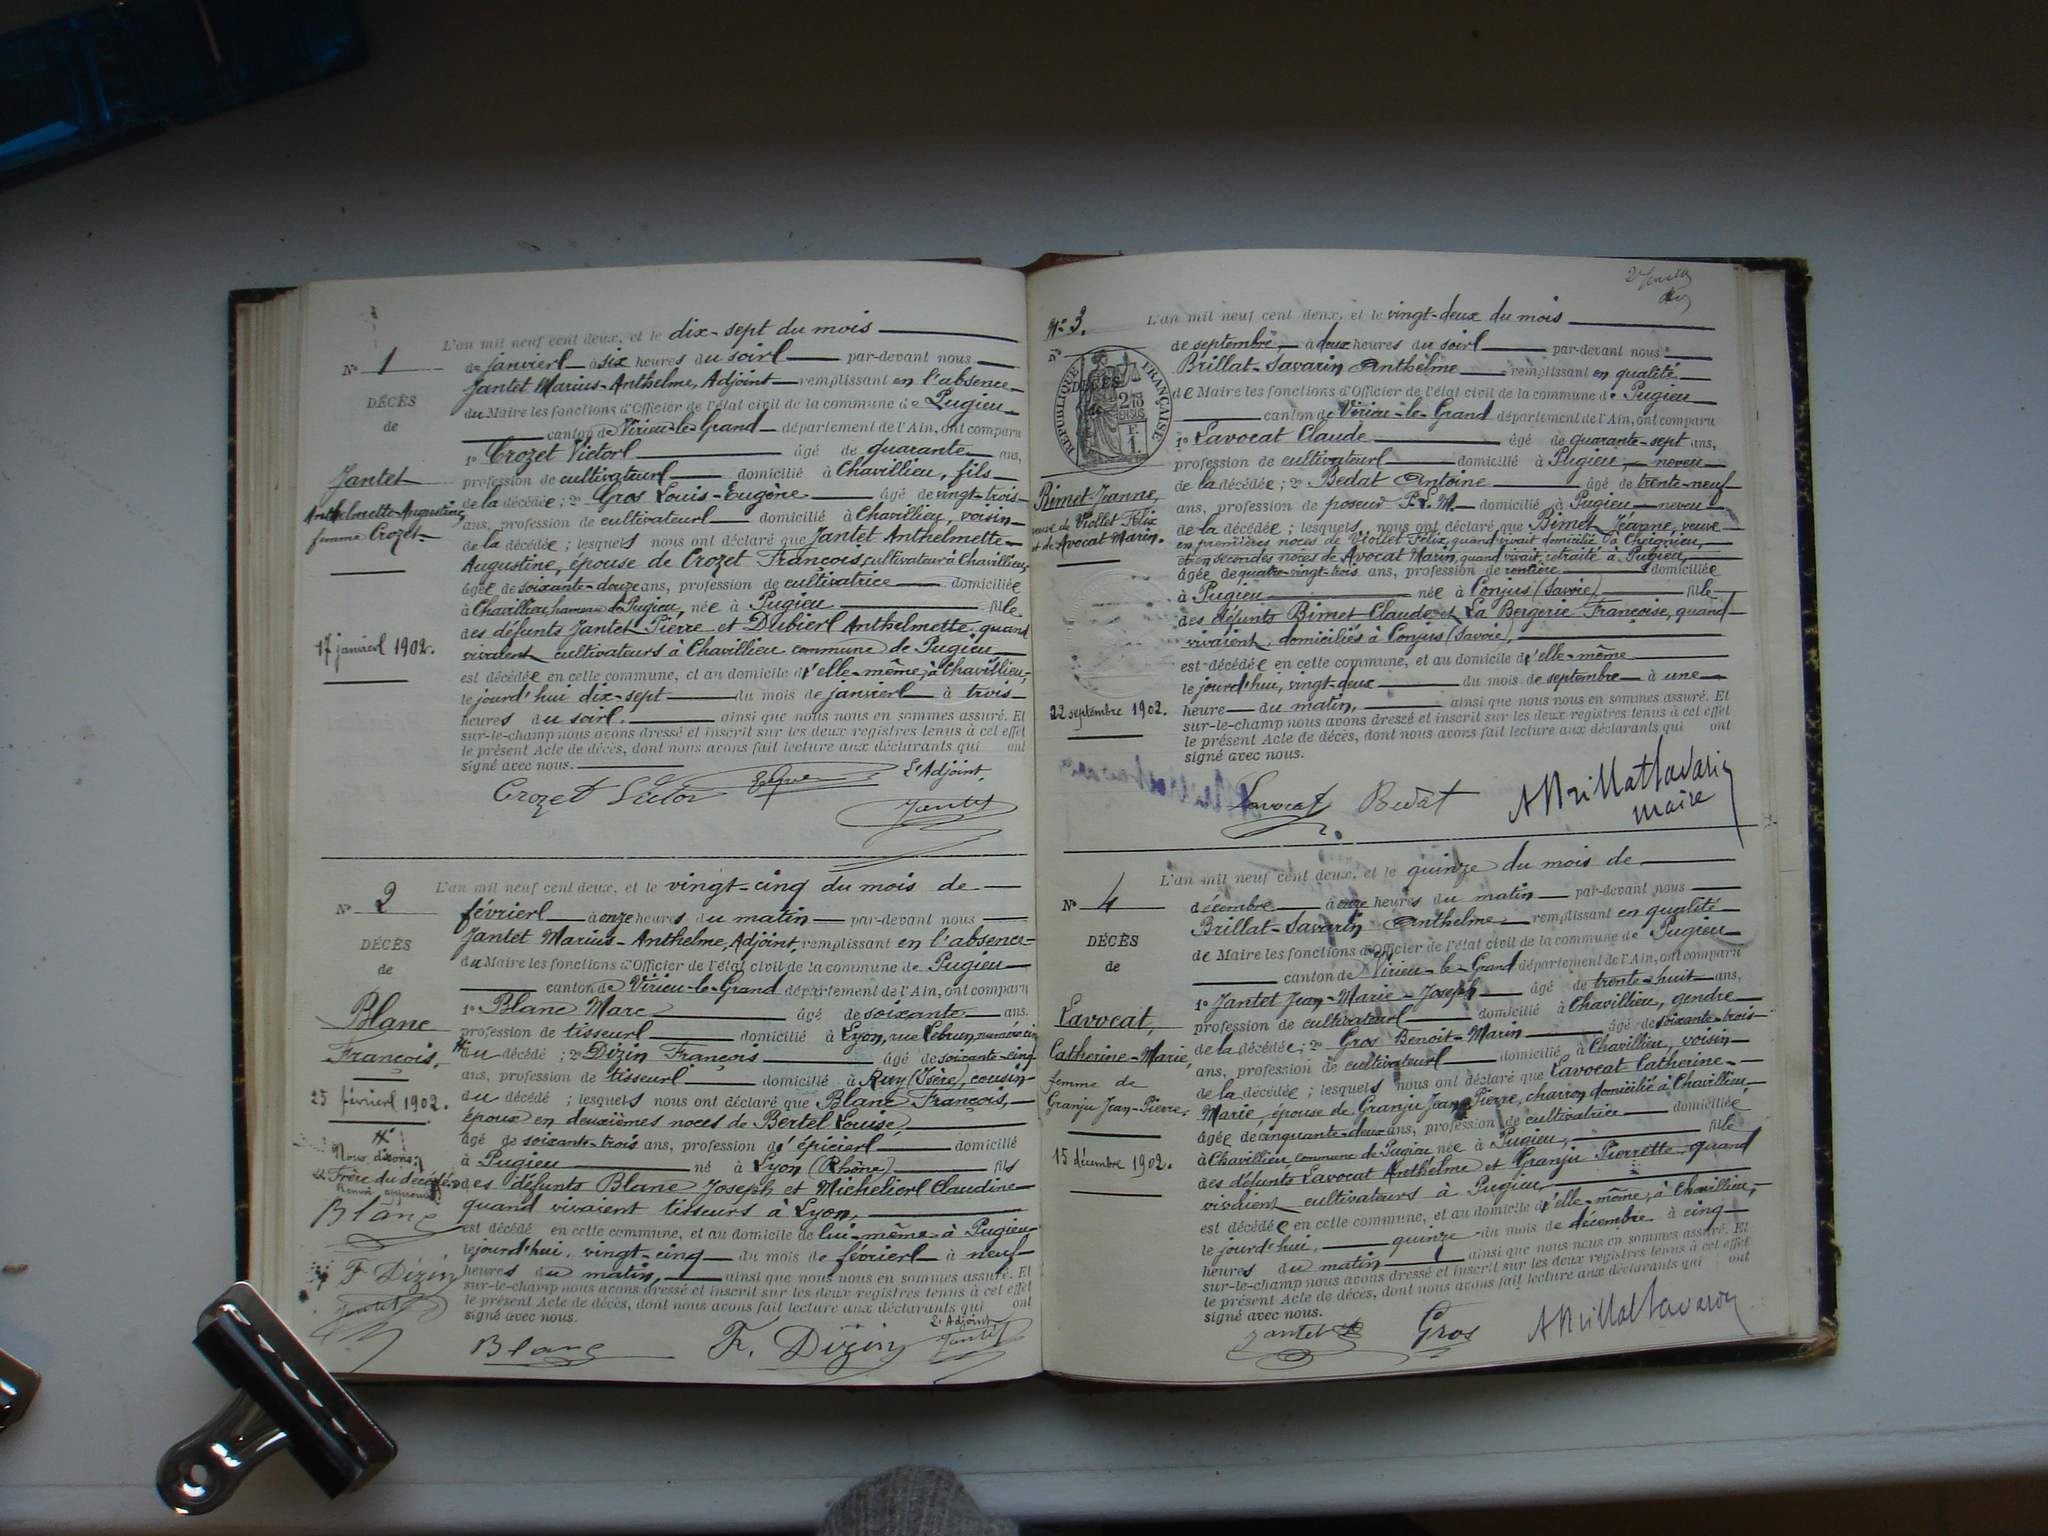 L'an mil neuf cent deux, et le dix-sept du mois
N° 1
de janvier à six heures du soir par-devant nous
Jantet Marius-Anthelme, Adjoint remplissant en l'absence
DÉCÈS
du Maire les fonctions d'Officier de l'état civil de la commune de Pugieu
de
canton de Virieu-le-Grand département de l'Ain, ont comparu
1° Crozet Victor âgé de quarante ans,
Jantet
profession de cultivateur domicilié à Chavillieu, fils
Anthelmette-Augustine,
de la décédée ; 2° Gros Louis-Eugène âgé de vingt-trois
femme Crozet
ans, profession de cultivateur domicilié à Chavillieu, voisin
de la décédée ; lesquels nous ont déclaré que Jantet Anthelmette-
Augustine, épouse de Crozet François, cultivateur à Chavillieu,
âgée de soixante-douze ans, profession de cultivatrice domiciliée
à Chavillieu hameau de Pugieu, née à Pugieu fille
des défunts Jantet Pierre et Dubier Anthelmette quand
17 janvier 1902.
vivaient cultivateurs à Chavillieu commune de Pugieu
est décédée en cette commune, et au domicile d'elle-même, à Chavillieu,
le jourd'hui dix-sept du mois de janvier à trois
heures du soir. ainsi que nous nous en sommes assuré. Et
sur-le-champ nous avons dressé et inscrit sur les deux registres tenus à cet effet
le présent Acte de décès, dont nous avons fait lecture aux déclarants qui ont
signé avec nous.
L'Adjoint.
Crozet Victor
Jantet
L'an mil neuf cent deux, et le vingt-cinq du mois de
N° 2
février à onze heures du matin par-devant nous
Jantet Marius-Anthelme, Adjoint, remplissant en l'absence
DÉCÈS
du Maire les fonctions d'Officier de l'état civil de la commune de Pugieu
de
canton de Virieu-le-Grand département de l'Ain, ont comparu
1° Blanc Marc âgé de soixante ans,
Blanc
profession de tisseur domicilié à Lyon, rue Lebrun, numéro
François,
du décédé ; 2° Dizin François âgé de soixante-cinq
ans, profession de tisseur domicilié à Ruy (Isère), cousin
25 février 1902.
du décédé ; lesquels nous ont déclaré que Blanc François,
époux en deuxièmes noces de Bertel Louise,
âgé de soixante-trois ans, profession d'épicier domicilié
Nous disons:
à Pugieu né à Lyon (Rhône) fils
« Frère du décédé. »
des défunts Blanc Joseph et Michelier Claudine
Renvoi approuvé
quand vivaient tisseurs à Lyon,
Blanc
est décédé en cette commune, et au domicile de lui-même à Pugieu
le jourd'hui, vingt-cinq du mois de février à neuf
F Dizin
heures du matin, ainsi que nous nous en sommes assuré. Et
sur-le-champ nous avons dressé et inscrit sur les deux registres tenus à cet effet
Jantet
le présent Acte de décès, dont nous avons fait lecture aux déclarants qui ont
signé avec nous.
L'Adjoint
Blanc F. Dizin Jantet
N° 3.
L'an mil neuf cent deux, et le vingt-deux du mois
N°
de septembre à deux heures du soir par-devant nous
Brillat-Savarin Anthelme remplissant en qualité
RÉPUBLIQUE FRANÇAISE
DÉCÈS
de
de Maire les fonctions d'Officier de l'état civil de la commune de Pugieu
canton de Virieu-le-Grand département de l'Ain, ont comparu
1° Lavocat Claude âgé de quarante-sept ans,
profession de cultivateur domicilié à Pugieu, neveu
de la décédée ; 2° Bedat Antoine âgé de trente-neuf
Bimet Jeanne,
ans, profession de poseur P.L.M. domicilié à Pugieu neveu
veuve de Viollet Félix
de la décédée ; lesquels nous ont déclaré que Bimet Jeanne, veuve
et de Avocat Marin.
en premières noces de Viollet Félix, quand vivait domicilié à Cheignieu,
et en secondes noces de Avocat Marin, quand vivait, retraité à Pugieu,
âgée de quatre-vingt-trois ans, profession de rentière domiciliée
à Pugieu née à Conjus (Savoie) fille
des défunts Bimet Claude et La Bergerie Françoise, quand
vivaient, domiciliés à Conjus (Savoie),
est décédée en cette commune, et au domicile d'elle-même
le jourd'hui, vingt-deux du mois de septembre à une
22 septembre 1902.
heure du matin, ainsi que nous nous en sommes assuré. Et
sur-le-champ nous avons dressé et inscrit sur les deux registres tenus à cet effet
le présent Acte de décès, dont nous avons fait lecture aux déclarants qui ont
signé avec nous.
Lavocat Bedat ABrillatSavarin
maire
L'an mil neuf cent deux, et le quinze du mois de
N° 4
décembre à onze heures du matin par-devant nous
Brillat-Savarin Anthelme remplissant en qualité
DÉCÈS
de Maire les fonctions d'Officier de l'état civil de la commune de Pugieu
de
canton de Virieu-le-Grand département de l'Ain, ont comparu
1° Jantet Jean-Marie-Joseph âgé de trente-huit ans,
Lavocat,
profession de cultivateur domicilié à Chavillieu, gendre
Catherine-Marie,
de la décédée ; 2° Gros Benoit-Marin âgé de soixante-trois
femme de
ans, profession de cultivateur domicilié à Chavillieu, voisin
Granju Jean-Pierre.
de la décédée ; lesquels nous ont déclaré que Lavocat Catherine-
Marie, épouse de Granju Jean-Pierre, charron domicilié à Chavillieu
âgée de cinquante-deux ans, profession de cultivatrice domiciliée
15 décembre 1902.
à Chavillieu, commune de Pugieu née à Pugieu, fille
des défunts Lavocat Anthelme et Granju Pierrette quand
vivaient cultivateurs à Pugieu,
est décédée en cette commune, et au domicile d'elle-même, à Chavillieu,
le jourd'hui, quinze du mois de décembre à cinq
heures du matin ainsi que nous nous en sommes assuré. Et
sur-le-champ nous avons dressé et inscrit sur les deux registres tenus à cet effet
le présent Acte de décès, dont nous avons fait lecture aux déclarants qui ont
signé avec nous.
Jantet Gros ABrillatSavarin